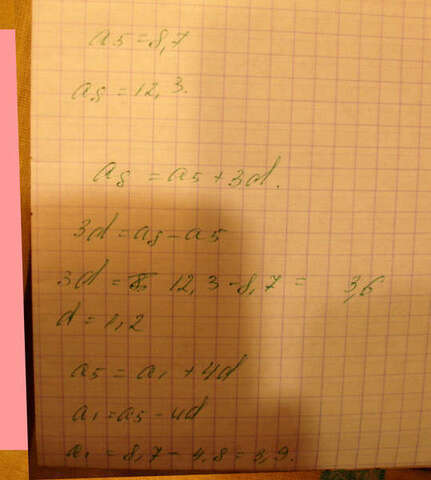 a5 = 8,7
a8 = 12,3.
a8 = a5 + 3d.
3d = a8 - a5
3d = 12,3 - 8,7 = 3,6
d = 1,2
a5 = a1 + 4d
a1 = a5 - 4d
a1 = 8,7 - 4,8 = 3,9.